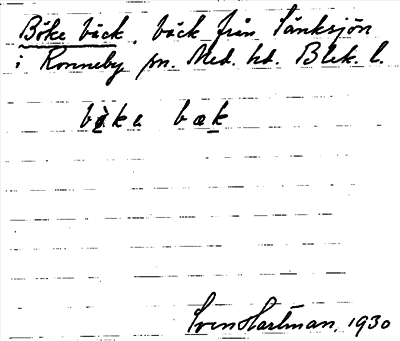 Böke bäck, bäck från Sänksjön
i Ronneby sn. Med. hd. Blek. l.
bȯ̀ke bæk
Sven Hartman, 1930